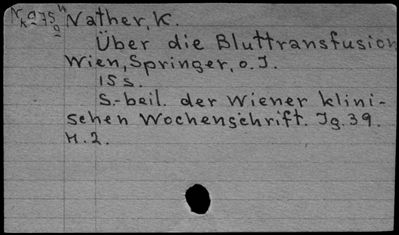 Nather, K.
Über die Bluttransfusion
Wien, Springer, o. J.
15 s.
S.-beil. der Wiener klini-
schen Wochenschrift. Jg. 39.
H. 2.